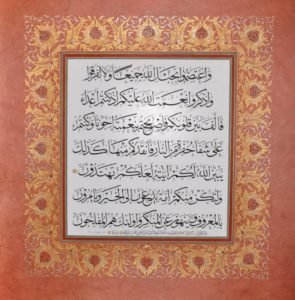 واعتصموا بحبل الله جميعا ولا تفرقوا
واذكروا نعمة الله عليكم إذ كنتم أعداء
فألف بين قلوبكم فأصبحتم بنعمته إخوانا وكنتم
على شفا حفرة من النار فأنقذكم منها كذلك
يبين الله لكم آياته لعلكم تهتدون
ولتكن منكم أمة يدعون إلى الخير ويأمرون
بالمعروف وينهون عن المنكر وأولئك هم المفلحون